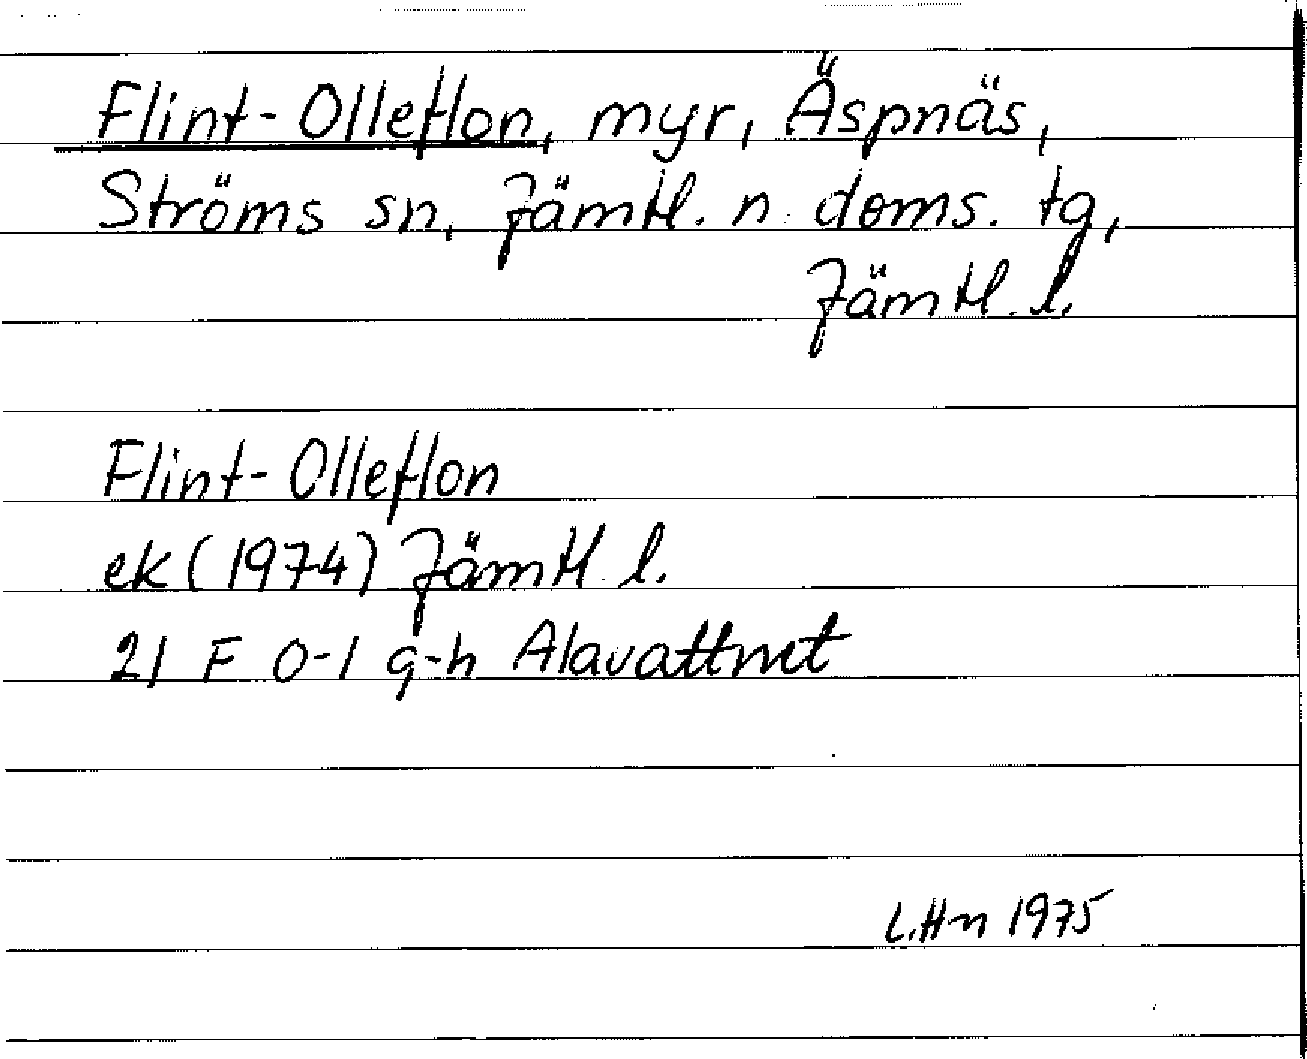 Flint-Olleflon, myr, Äspnäs,
Ströms sn, Jämtl. n. doms. tg,
Jämtl. l.
Flint-Olleflon
ek (1974) Jämtl. l.
21 F 0-1 g-h Alavattnet
L.Hn 1975